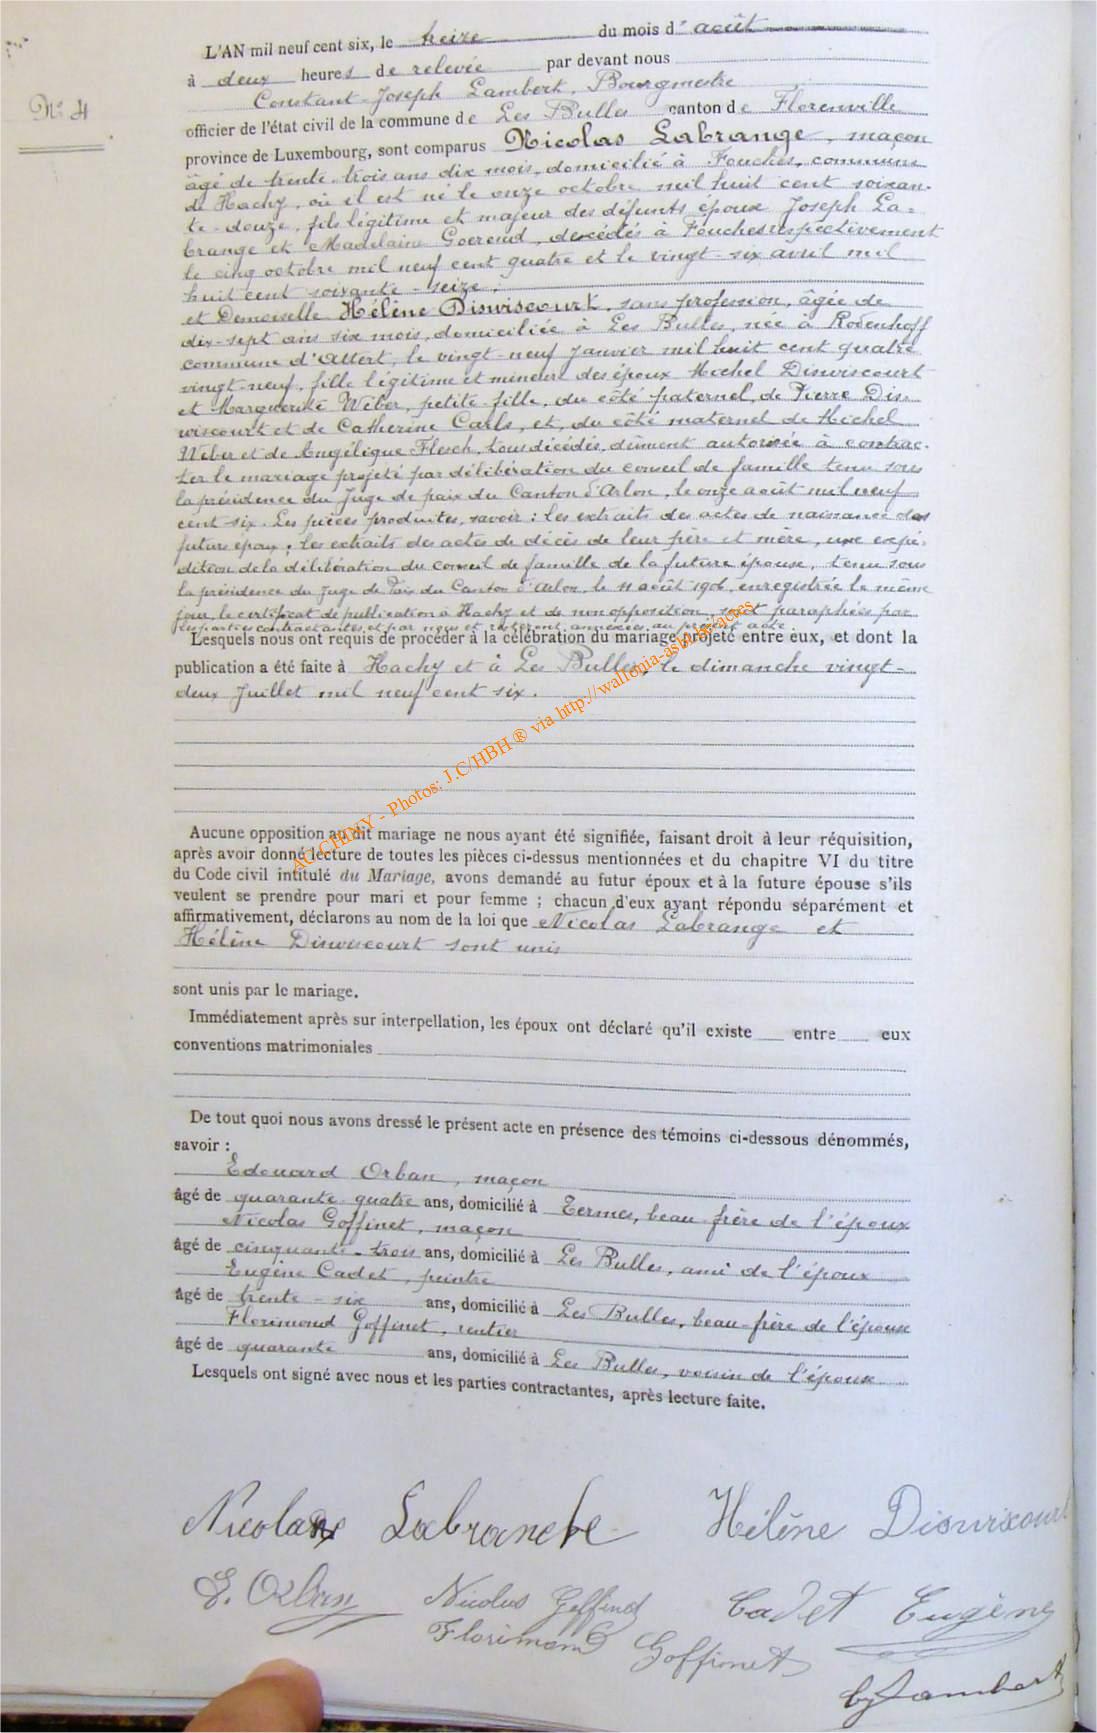 N° 4
L'AN mil neuf cent six, le treize du mois d' août
à deux heures de relevée par devant nous
Constant-Joseph Lambert, Bourgmestre
officier de l'état civil de la commune de Les Bulles canton de Florenville
province de Luxembourg, sont comparus Nicolas Labrange, maçon
âgé de trente-trois ans dix mois, domicilié à Fouches, commune
de Hachy, où il est né le onze octobre mil huit cent soixan-
te-douze, fils légitime et majeur des défunts époux Joseph La-
brange et Madelaine Goerend, décédés à Fouches respectivement
le cinq octobre mil neuf cent quatre et le vingt-six avril mil
huit cent soixante-seize;
et Demoiselle Hélène Diswiscourt, sans profession, âgée de
dix-sept ans six mois, domiciliée à Les Bulles, née à Rodenhoff
commune d'Attert, le vingt-neuf Janvier mil huit cent quatre
vingt-neuf, fille légitime et mineure des époux Michel Diswiscourt
et Marguerite Wéber, petite-fille, du côté paternel, de Pierre Dis-
wiscourt et de Catherine Carls, et, du côté maternel de Michel
Wéber et de Angélique Flesch, tous décédés, dûment autorisée à contrac-
ter le mariage projeté par délibération du conseil de famille tenu sous
la présidence du Juge de paix du Canton d'Arlon, le onze août mil neuf
cent six. Les pièces produites, savoir: les extraits des actes de naissance des
futurs époux; les extraits des actes de décès de leur père et mère, une expé-
dition de la délibération du conseil de famille de la future épouse, tenu sous
la présidence du Juge de Paix du Canton d'Arlon, le 11 août 1906, enregistrée le même
jour, le certificat de publication à Hachy et de non opposition, sont paraphées par
les parties contractantes et par nous et resteront annexées au présent acte.
Lesquels nous ont requis de procéder à la célébration du mariage projeté entre eux, et dont la
publication a été faite à Hachy et à Les Bulles, le dimanche vingt-
deux Juillet mil neuf cent six.
AC CHINY - Photos: J.C/HBH ® via http://wallonia-asbl.be/actes
Aucune opposition au dit mariage ne nous ayant été signifiée, faisant droit à leur réquisition,
après avoir donné lecture de toutes les pièces ci-dessus mentionnées et du chapitre VI du titre
du Code civil intitulé du Mariage, avons demandé au futur époux et à la future épouse s'ils
veulent se prendre pour mari et pour femme ; chacun d'eux ayant répondu séparément et
affirmativement, déclarons au nom de la loi que Nicolas Labrange et
Hélène Diswiscourt sont unis
sont unis par le mariage.
Immédiatement après sur interpellation, les époux ont déclaré qu'il existe entre eux
conventions matrimoniales
De tout quoi nous avons dressé le présent acte en présence des témoins ci-dessous dénommés,
savoir :
Edouard Orban, maçon
âgé de quarante-quatre ans, domicilié à Termes, beau-frère de l'époux
Nicolas Goffinet, maçon
âgé de cinquante-trois ans, domicilié à Les Bulles, ami de l'époux
Eugène Cadet, peintre
âgé de trente-six ans, domicilié à Les Bulles, beau-frère de l'épouse
Florimond Goffinet, rentier
âgé de quarante ans, domicilié à Les Bulles, voisin de l'épouse
Lesquels ont signé avec nous et les parties contractantes, après lecture faite.
Nicolas Labranche Hélène Diswiscourt
E. Orban Nicolas Goffinet Cadet Eugène
Florimond Goffinet
Lambert